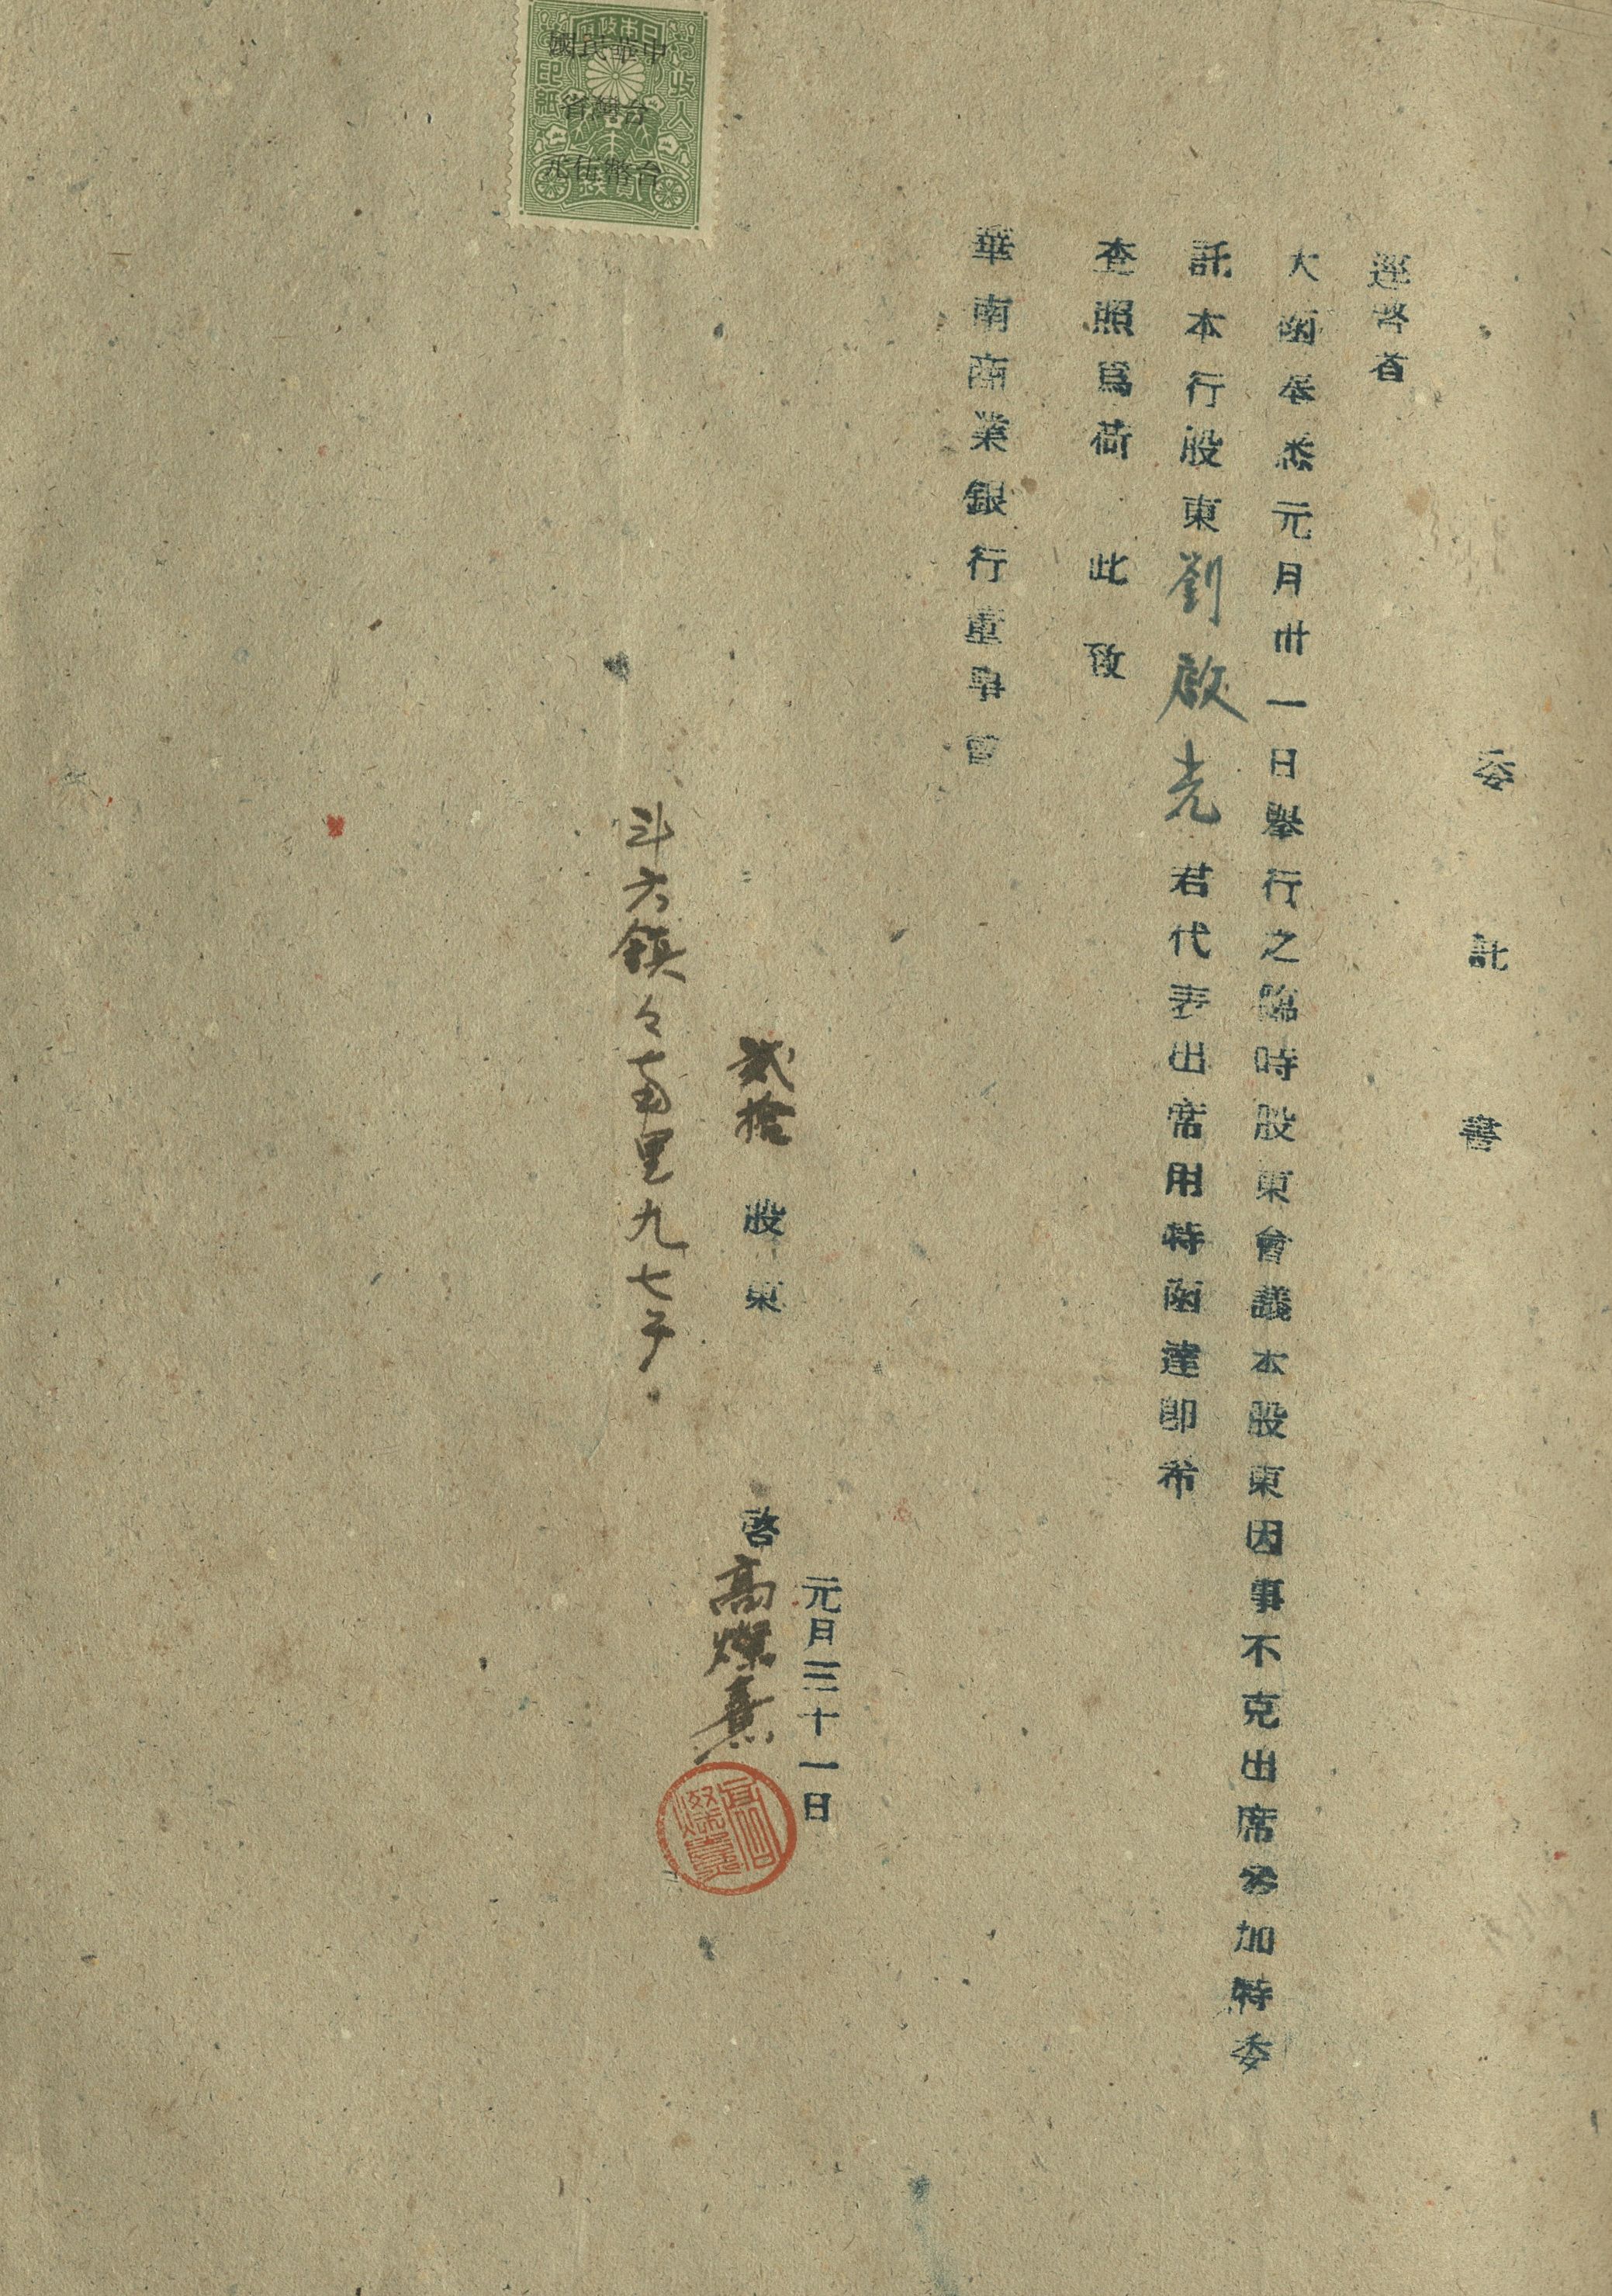 委託書
逕啓者
大函奉悉元月卅一日舉行之臨時股東會議本股東因事不克出席參加特委
託本行股東劉啟光君代表出席用特函達即希
查照爲荷 此致
華南商業銀行董事會
元月三十一日
貳拾 股東 啓 高燦熹
斗六鎮々南里九七子
日本政府
收入印紙
中華民國
台灣省
台幣伍元